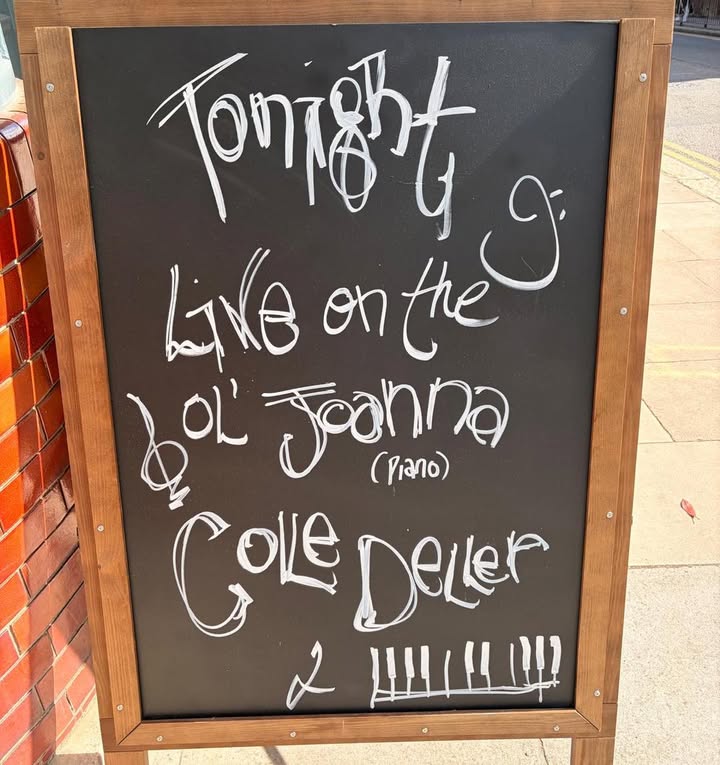 Tonight
Live on the
OL' Joanna
(Piano)
Cole Deller